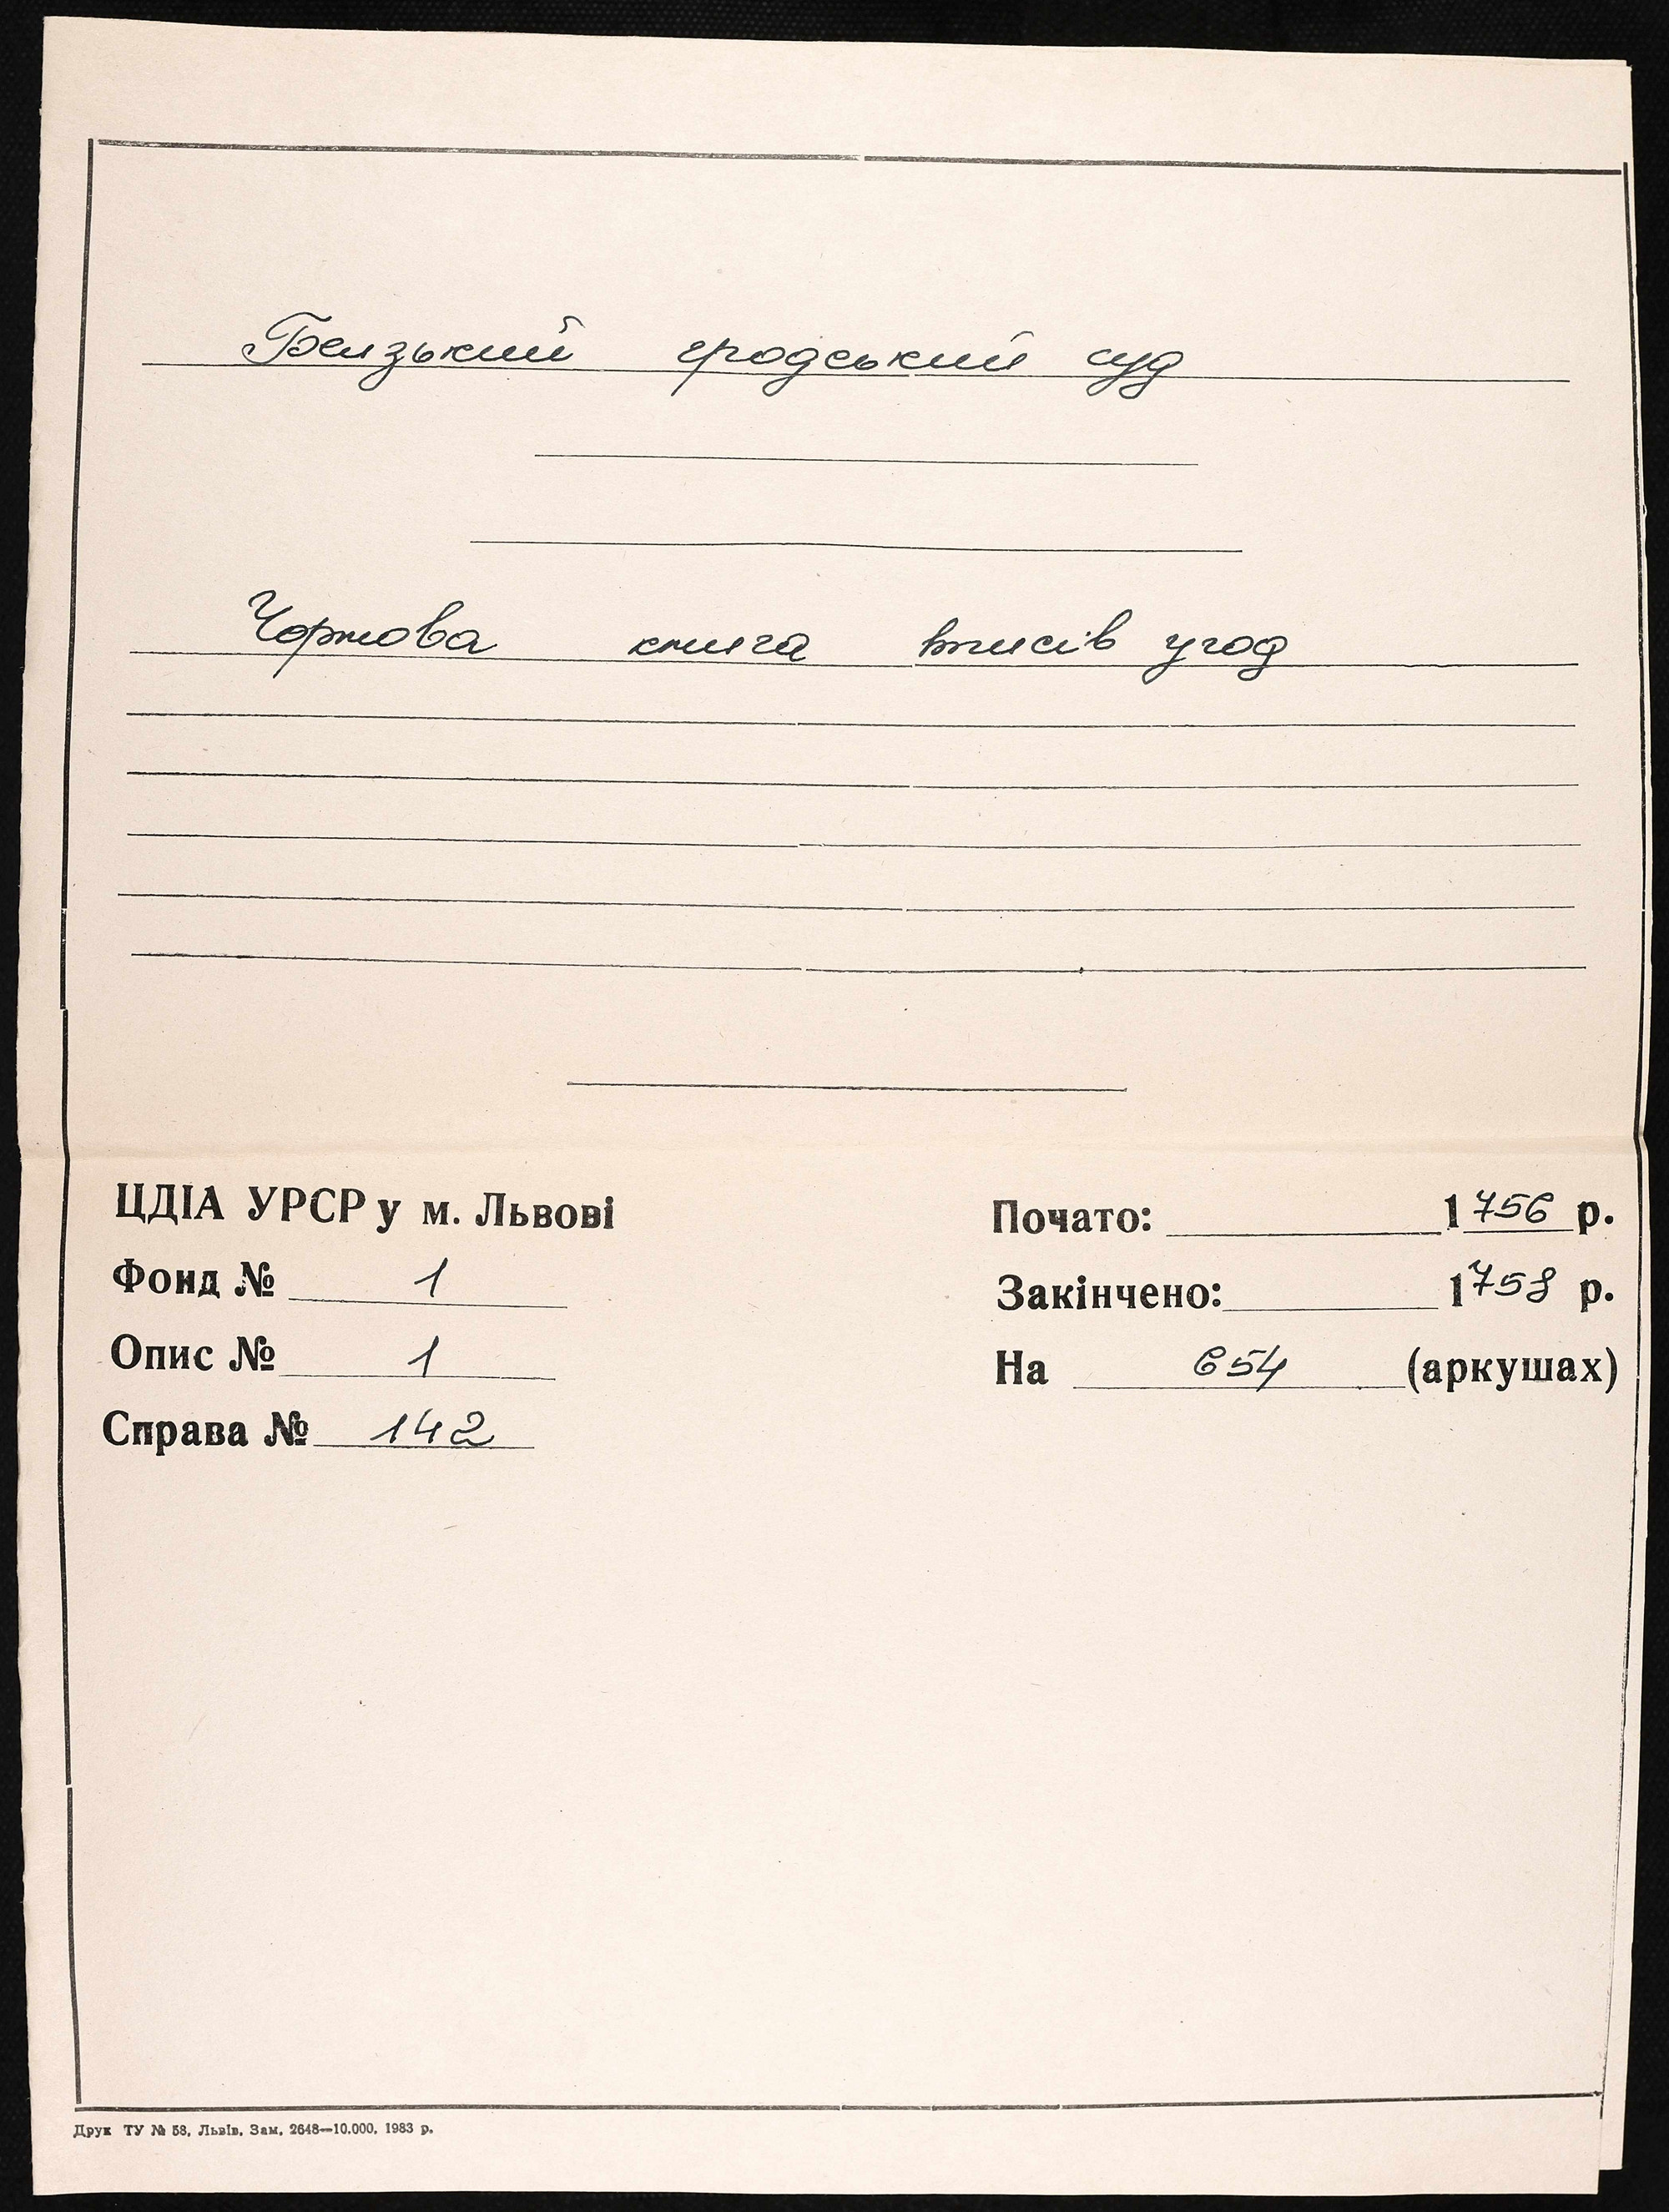 Белзький гродський суд
Чорнова книга вписів угод
ЦДІА УРСР у м. Львові
Фонд № 1
Опис № 1
Справа № 142
Почато: 1756 р.
Закінчено: 1758 р.
На 654 (аркушах)
Друк ТУ № 58, Львів, Зам. 2648—10.000. 1983 р.